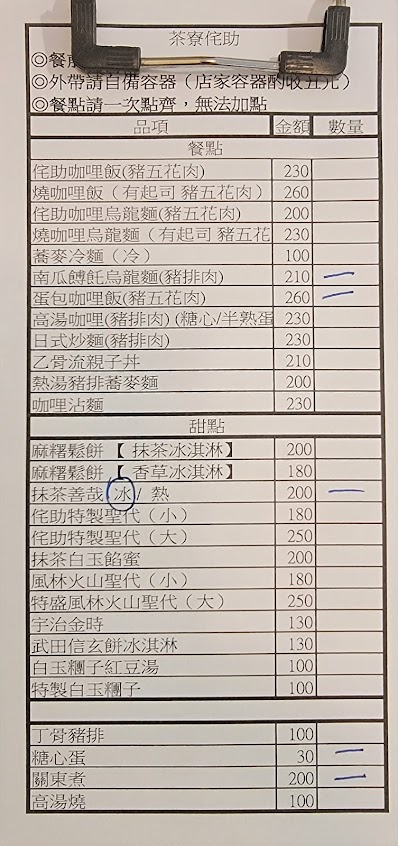 茶寮侘助
◎餐
◎外帶請自備容器（店家容器酌收五元）
◎餐點請一次點齊，無法加點
品項 金額 數量
餐點
侘助咖哩飯(豬五花肉) 230
燒咖哩飯（有起司 豬五花肉） 260
侘助咖哩烏龍麵(豬五花肉) 200
燒咖哩烏龍麵（有起司 豬五花 230
蕎麥冷麵（冷） 100
南瓜餺飥烏龍麵(豬排肉) 210 一
蛋包咖哩飯(豬五花肉) 260 一
高湯咖哩(豬排肉) (糖心/半熟蛋 230
日式炒麵(豬排肉) 230
乙骨流親子丼 210
熱湯豬排蕎麥麵 200
咖哩沾麵 230
甜點
麻糬鬆餅【 抹茶冰淇淋】 200
麻糬鬆餅【 香草冰淇淋】 180
抹茶善哉 冰 / 熱 200 一
侘助特製聖代（小） 180
侘助特製聖代（大） 250
抹茶白玉餡蜜 200
風林火山聖代（小） 180
特盛風林火山聖代（大） 250
宇治金時 130
武田信玄餅冰淇淋 130
白玉糰子紅豆湯 100
特製白玉糰子 100
丁骨豬排 100
糖心蛋 30 一
關東煮 200 一
高湯燒 100